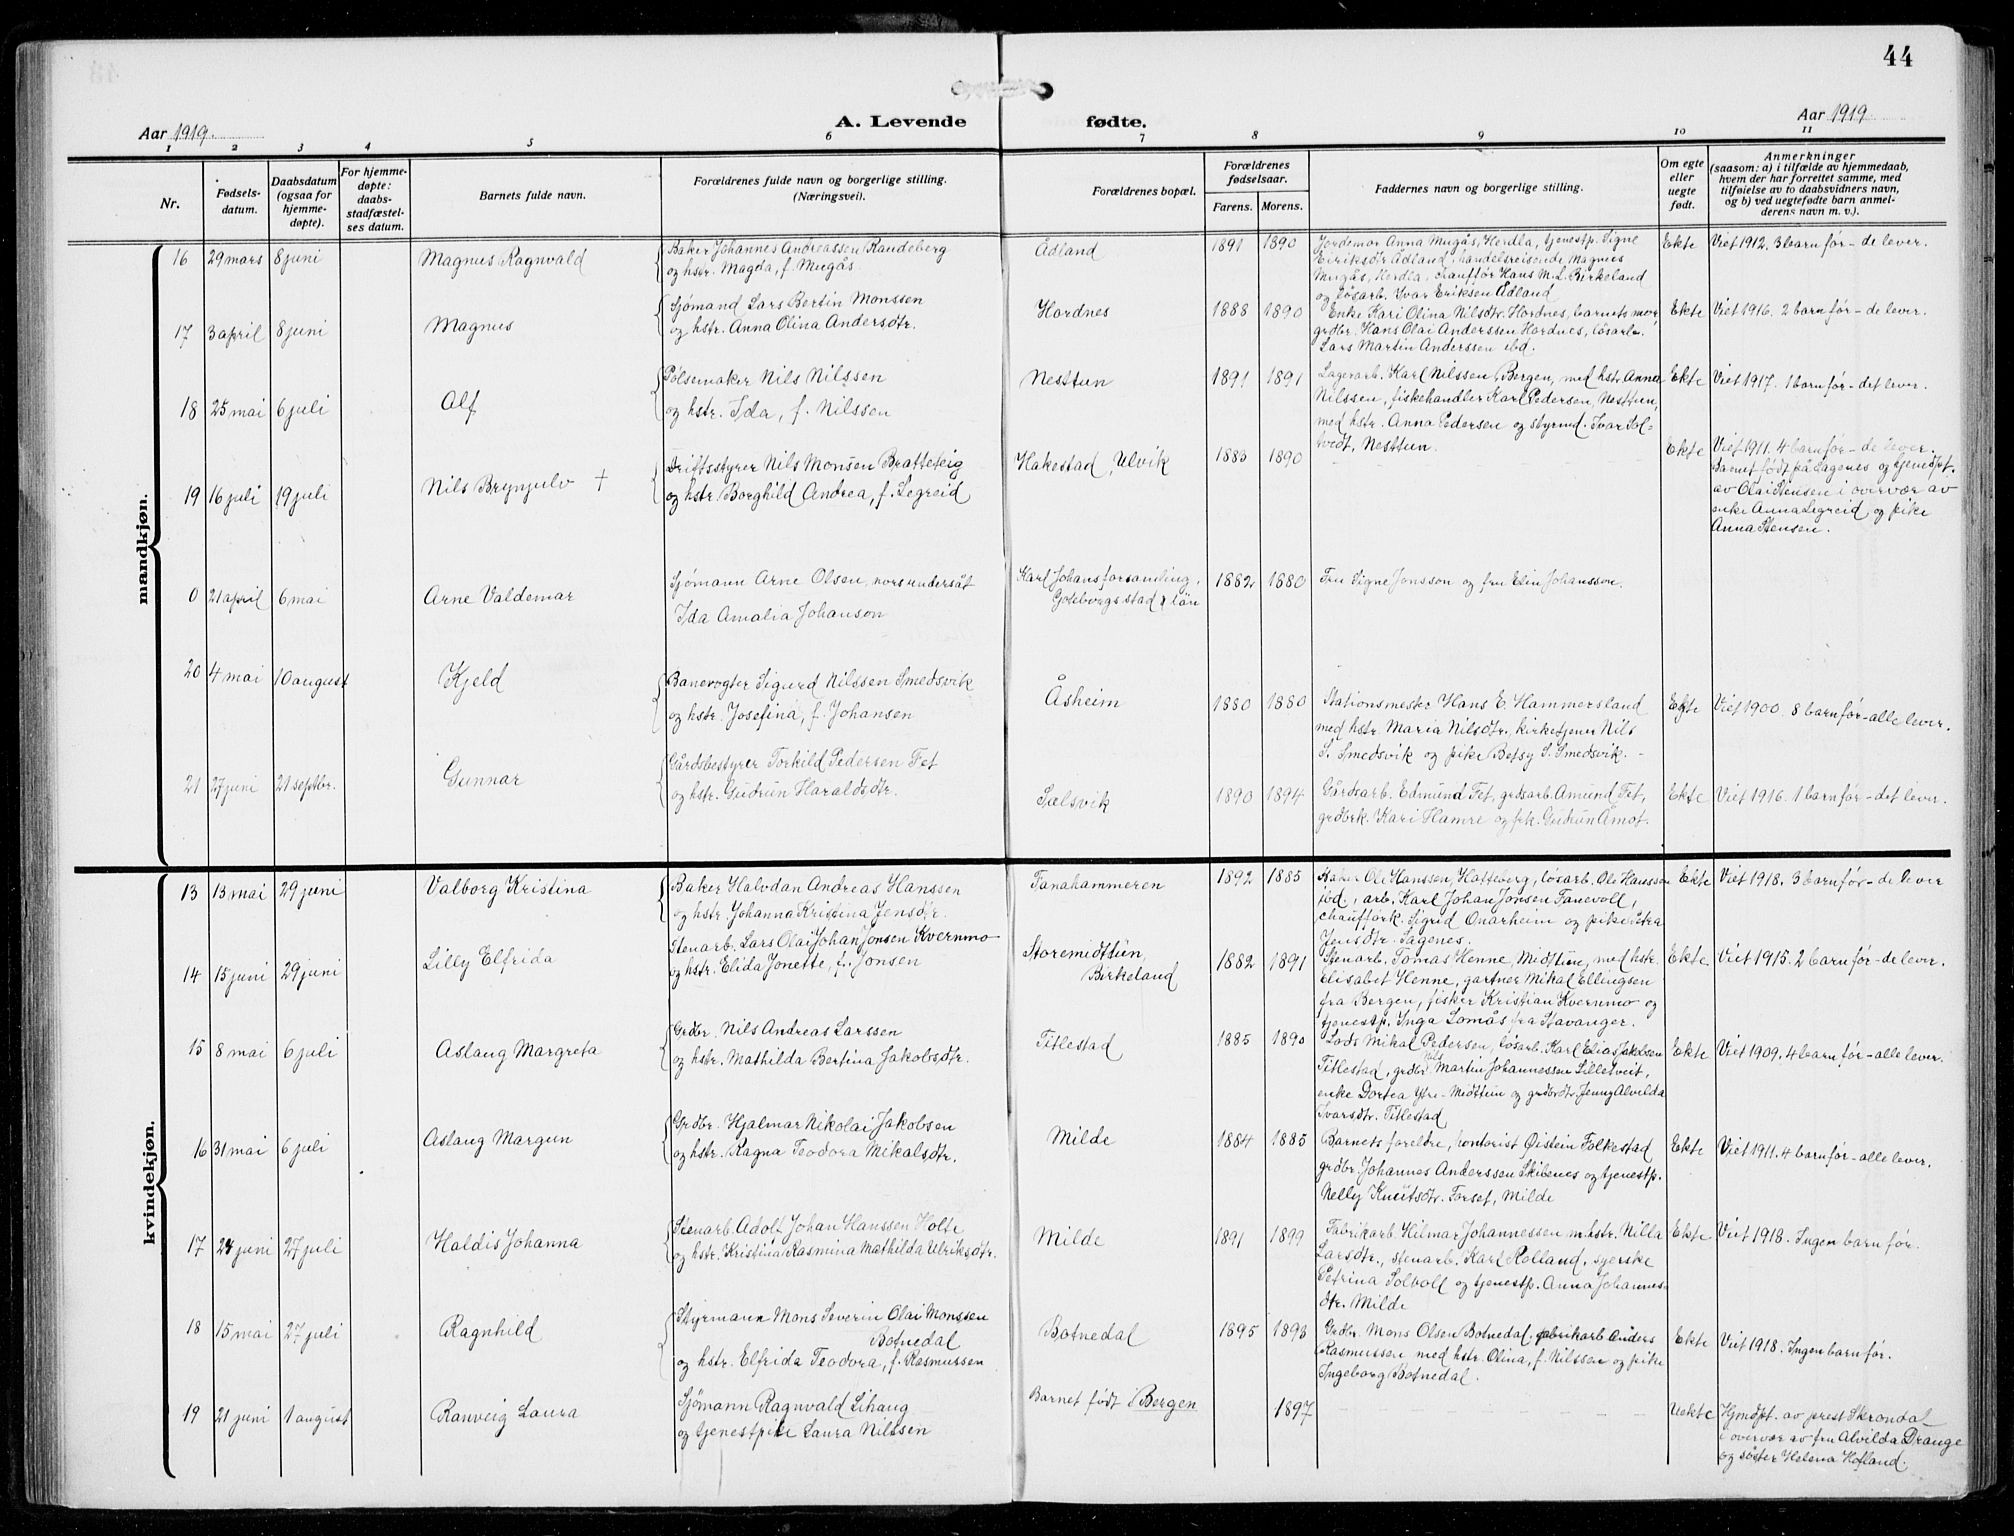 44
Aar 1919.
A. Levende
fødte.
Aar 1919
1 2 3 4 5 6 7 8 9 10 11
Nr.
Fødsels-
datum.
Daabsdatum
(ogsaa for
hjemme-
døpte).
For hjemme-
døpte:
daabs-
stadfæstel-
ses datum.
Barnets fulde navn.
Forældrenes fulde navn og borgerlige stilling.
(Næringsvei).
Forældrenes bopæl.
Forældrenes
fødselsaar.
Farens. Morens.
Faddernes navn og borgerlige stilling.
Om egte
eller
uegte
født.
Anmerkninger
(saasom: a) i tilfælde av hjemmedaab,
hvem der har forrettet samme, med
tilføielse av to daabsvidners navn,
og b) ved uegtefødte barn anmel-
derens navn m. v.).
mandkjøn.
16 29 mars 8 juni Magnus Ragnvald
Baker Johannes Andreassen Randeberg
og hstr. Magda, f. Mugås
Ådland 1891 1890
Jordemor Anna Mugås, Herdla, tjenestp. Signe
Eiriksdtr Ådland, handelsreisende Magnus
Mugås, Herdla, chauffør Hans M. L. Birkeland
og løsarb. Ivar Eriksen Ådland
Ekte Viet 1912. 3 barn før - de lever.
17 3 april 8 juni Magnus
Sjømand Lars Bertin Monssen
og hstr. Anna Olina Andersdtr.
Hordnes 1888 1890
Enke Kari Olina Nilsdtr. Hordnes, barnets mor,
grdbr. Hans Olai Anderssen Hordnes, løsarb.
Lars Martin Anderssen ibd.
Ekte Viet 1916. 2 barn før - de lever.
18 25 mai 6 juli Alf
Pølsemaker Nils Nilssen
og hstr. Ida, f. Nilssen
Nesttun 1891 1891
Lagerarb. Karl Nilssen, Bergen, med hstr. Anna
Nilssen, fiskehandler Karl Pedersen, Nesttun,
med hstr. Anna Pedersen og styrmd. Ivar Sol-
tvedt, Nesttun.
Ekte Viet 1917. 1 barn før - det lever.
19 16 juli 19 juli Nils Brynjulv +
Driftsstyrer Nils Monsen Bratteteig
og hstr. Borghild Andrea, f. Legreid
Hakestad, Ulvik 1883 1890
Ekte Viet 1911. 4 barn før - de lever.
Barnet født på Lagenes og hjemdpt.
av Olai Stensen i overvær av
enke Anna Legreid og pike
Anna Stensen.
0 21 april 6 mai Arne Valdemar
Sjømann Arne Olsen, norsk undersåt
Ida Amalia Johanson
Karl Johans forsamling,
Göteborgs stad & län
1882 1880
Fru Signe Jonsson og fru Elin Johansson.
20 4 mai 10 august Kjeld
Banevogter Sigurd Nilssen Smedsvik
og hstr. Josefina, f. Johansen
Åsheim 1880 1880
Stationsmester Hans E. Hammersland
med hstr. Maria Nilsdtr., kirketjener Nils
S. Smedsvik og pike Betsy S. Smedsvik. -
Ekte Viet 1900. 8 barn før - alle lever.
21 27 juni 21 septbr. Gunnar
Gårdsbestyrer Torkild Pedersen Fet
og hstr. Gudrun Haraldsdtr.
Sælsvik 1890 1894
Gårdsarb. Edmund Fet, grdsarb. Amund Fet,
grdbrk. Kari Hamre og pk. Gudrun Åmot.
Ekte Viet 1916. 1 barn før - det lever.
kvindekjøn.
13 13 mai 29 juni Valborg Kristina
Baker Halvdan Andreas Hanssen
og hstr. Johanna Kristina Jensdtr.
Fanahammeren 1892 1885
Baker Ole Hanssen, Hatteberg, løsarb. Ole Hanssen
ibd., arb. Karl Johan Jonsen Fanevoll,
chaufførk. Sigrid Onarheim og pike Petra
Jensdtr. Sagenes.
Ekte Viet 1918. 3 barn før - de lever
14 15 juni 29 juni Lilly Elfrida
Stenarb. Lars Olai Johan Jonsen Kvernmo
og hstr. Elida Jonette, f. Jonsen
Storemidttun,
Birkeland
1882 1891
Stenarb. Tomas Henne, Midttun, med hstr.
Elisabet Henne, gartner Mikal Ellingsen
fra Bergen, fisker Kristian Kvernmo og
tjenestp. Inga Lomås fra Stavanger.
Ekte Viet 1915. 2 barn før - de lever.
15 8 mai 6 juli Aslaug Margreta
Grdbr. Nils Andreas Larssen
og hstr. Mathilda Bertina Jakobsdtr.
Titlestad 1885 1890
Lods Mikal Pedersen, løsarb. Karl Elias Jakobsen
Titlestad, grdbr. Nils Martin Johannessen Lilletveit,
enke Dortea Ytre-Midttun og grdbrdtr. Jenny Alvilda
Ivarsdtr. Titlestad
Ekte Viet 1909. 4 barn før - alle lever.
16 31 mai 6 juli Aslaug Margun
Grdbr. Hjalmar Nikolai Jakobsen
og hstr. Ragna Teodora Mikalsdtr.
Milde 1884 1885
Barnets foreldre, kontorist Øistein Folkestad
grdbr. Johannes Anderssen Skibenes og tjenestp.
Nelly Knutsdtr. Forset, Milde
Ekte Viet 1911. 4 barn før - alle lever.
17 24 juni 27 juli Haldis Johanna
Stenarb. Adolf Johan Hanssen Holte
og hstr. Kristina Rasmina Mathilda Ulriksdtr.
Milde 1891 1899
Fabrikarb. Hilmar Johannessen m. hstr. Nilla
Larsdtr., stenarb. Karl Rolland, syerske
Petrina Solvoll og tjenestp. Anna Johannes-
dtr. Milde
Ekte Viet 1918. Ingen barn før.
18 15 mai 27 juli Ragnhild
Styrmann Mons Severin Olai Monssen
Botnedal
og hstr. Elfrida Teodora, f. Rasmussen
Botnedal 1895 1893
Grdbr. Mons Olsen Botnedal, fabrikarb Anders
Rasmussen med hstr. Olina, f. Nilssen og pike
Ingeborg Botnedal.
Ekte Viet 1918. Ingen barn før.
19 21 juni 1 august Ranveig Laura
Sjømann Ragnvald Lihaug
og tjenestpike Laura Nilssen
Barnet født i Bergen 1897
Uekte Hjmdpt. av prest Skrondal
i overvær av fru Alvilda Drange
og søster Helena Hofland.